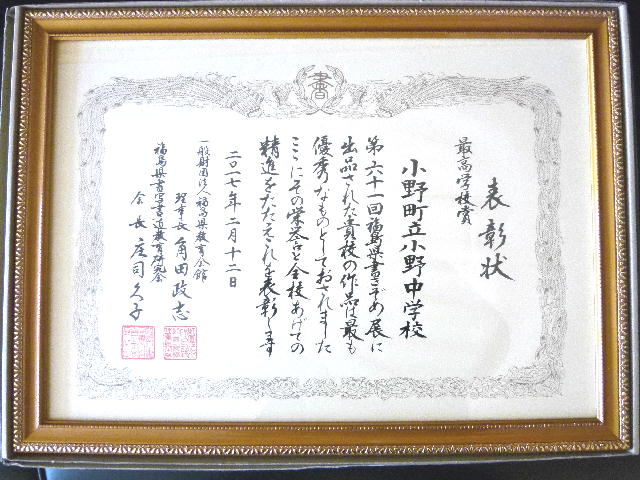 書
表彰状
最高学校賞
小野町立小野中学校
第六十一回福島県書きぞめ展に
出品された貴校の作品は最も
優秀なものとしておされました
ここにその栄誉と全校あげての
精進をたたえこれを表彰します
二〇一七年二月十二日
一般財団法人福島県教育会館
理事長 角田政志
福島県書写書道教育研究会
会長 庄司久子